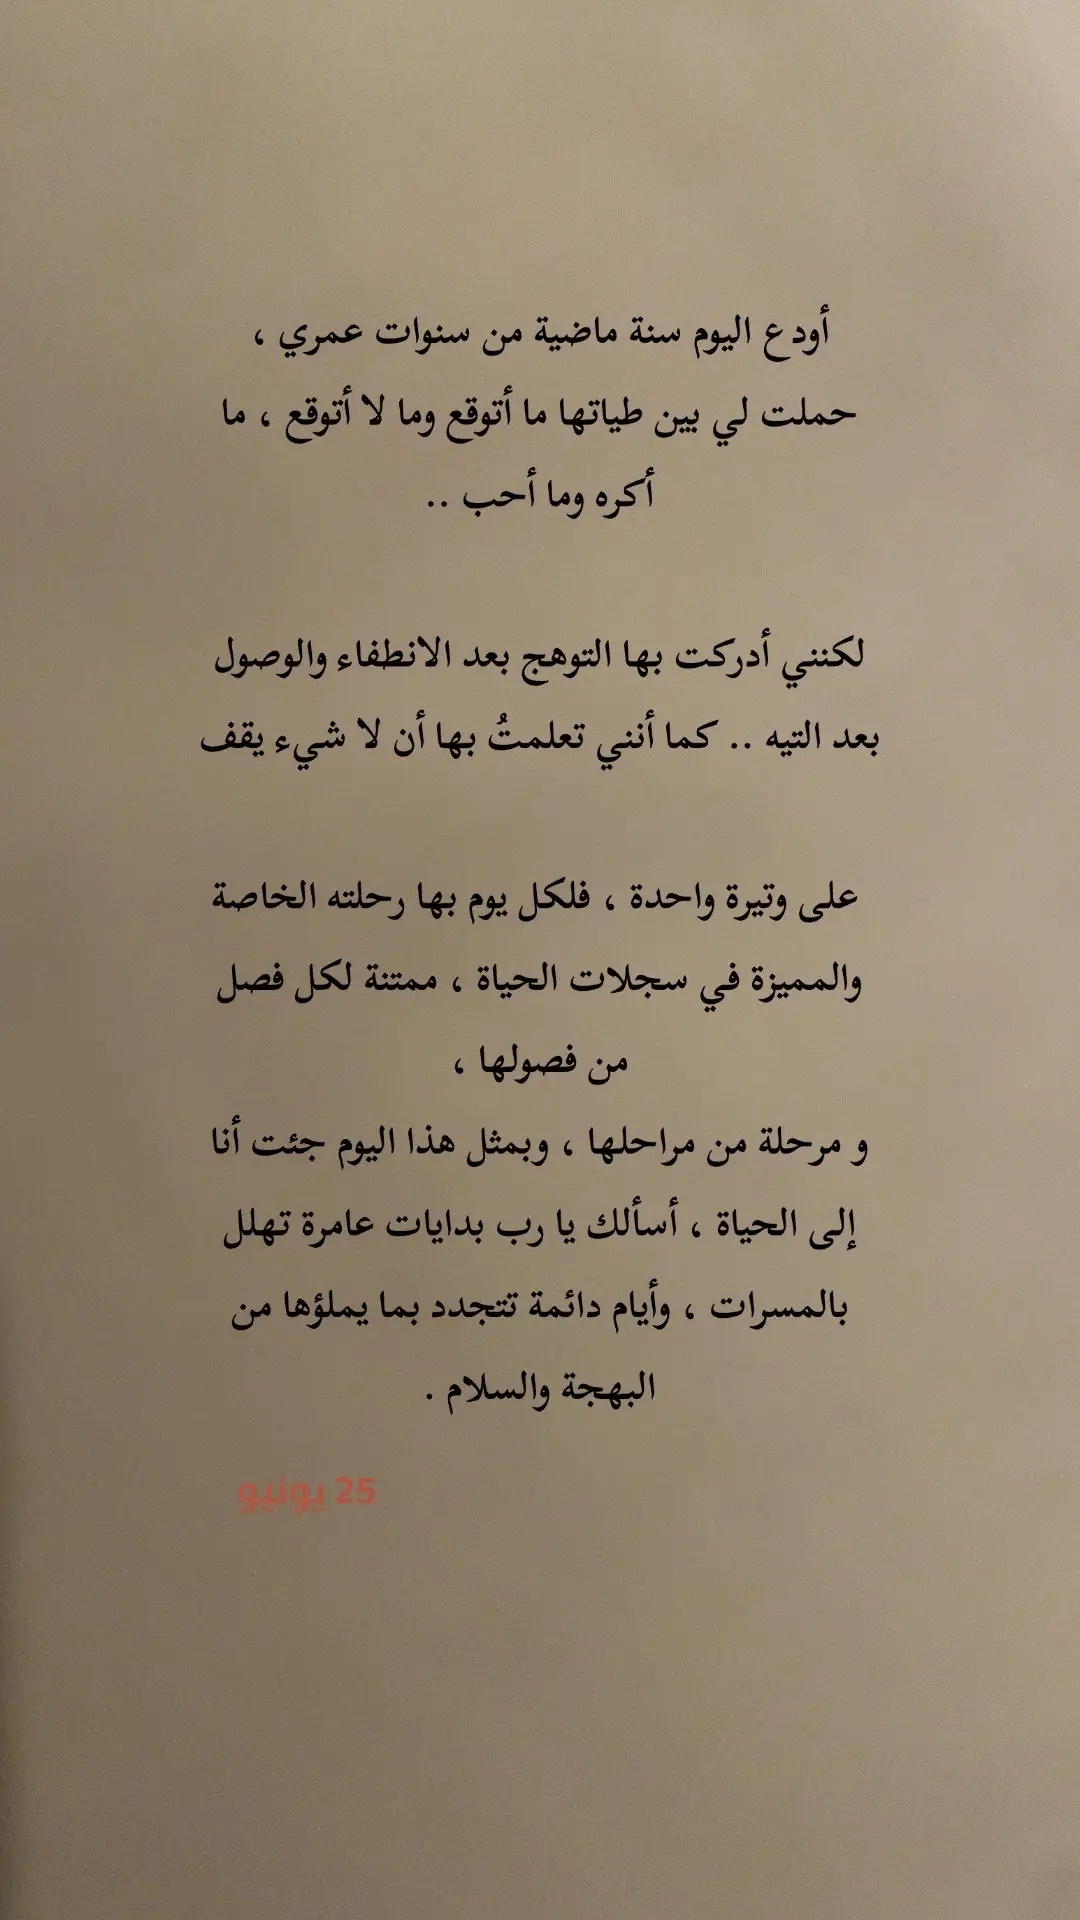 أودع اليوم سنة ماضية من سنوات عمري ،
حملت لي بين طياتها ما أتوقع وما لا أتوقع ، ما
أكره وما أحب ..
لكنني أدركت بها التوهج بعد الانطفاء والوصول
بعد التيه .. كما أنني تعلمتُ بها أن لا شيء يقف
على وتيرة واحدة ، فلكل يوم بها رحلته الخاصة
والمميزة في سجلات الحياة ، ممتنة لكل فصل
من فصولها ،
و مرحلة من مراحلها ، وبمثل هذا اليوم جئت أنا
إلى الحياة ، أسألك يا رب بدايات عامرة تهلل
بالمسرات ، وأيام دائمة تتجدد بما يملؤها من
البهجة والسلام .
25 يونيو